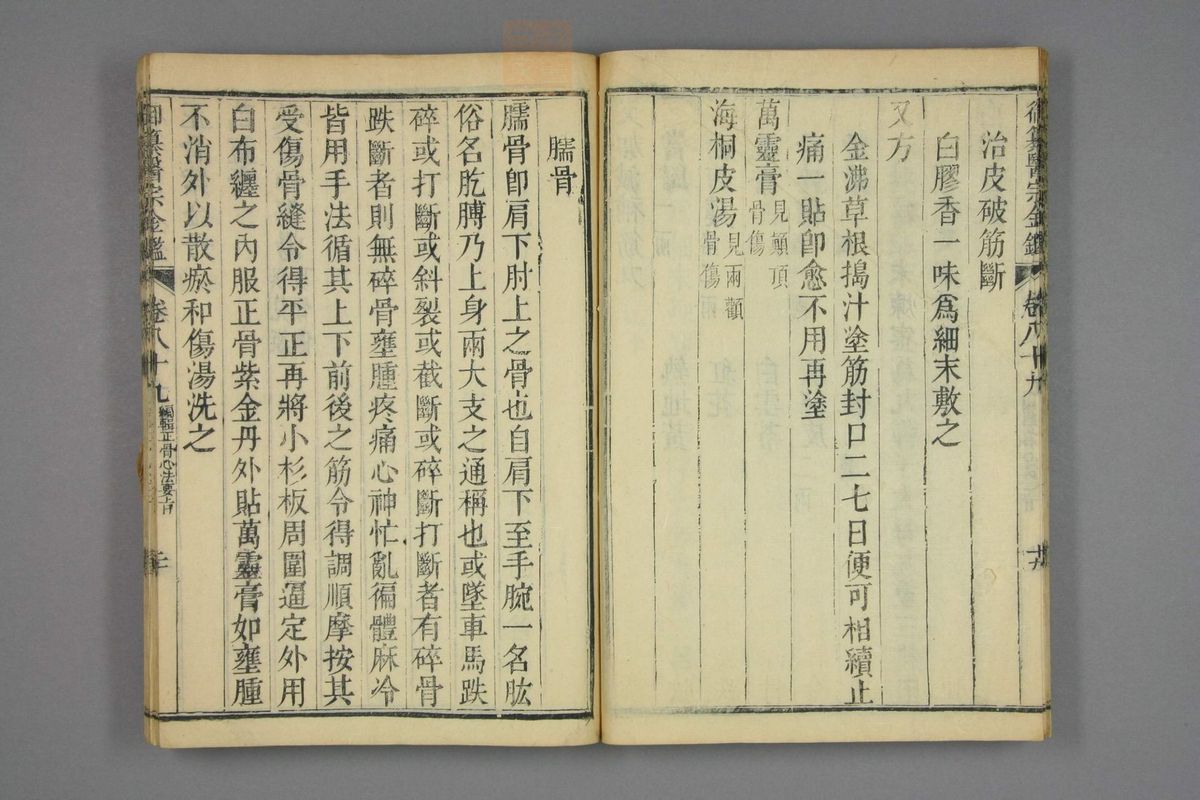 御纂醫宗金鑑 卷八十九
治皮破筋斷
白膠香一味爲細末敷之
又方
金沸草根搗汁塗筋封口二七日便可相續止
痛一貼卽愈不用再塗
萬靈膏 見顚頂骨傷
海桐皮湯 見兩顴骨傷
臑骨
臑骨卽肩下肘上之骨也自肩下至手腕一名肱
俗名肐膊乃上身兩大支之通稱也或墜車馬跌
碎或打斷或斜裂或截斷或碎斷打斷者有碎骨
跌斷者則無碎骨壅腫疼痛心神忙亂徧體麻冷
皆用手法循其上下前後之筋令得調順摩按其
受傷骨縫令得平正再將小杉板周圍逼定外用
白布纏之內服正骨紫金丹外貼萬靈膏如壅腫
不消外以散瘀和傷湯洗之
御纂醫宗金鑑 卷八十九 編輯正骨心法要旨